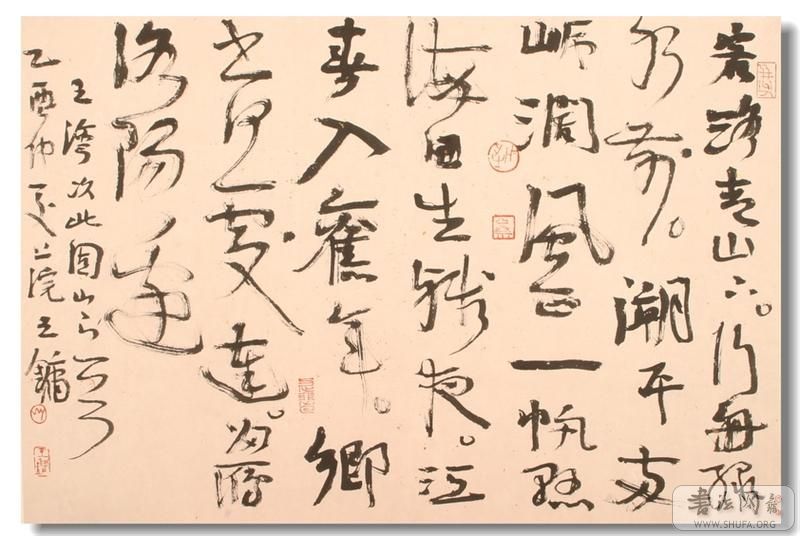 客路青山下。行舟綠
水前。潮平兩
岸闊風正一帆懸
海日生殘夜。江
春入舊年。鄉
書何處達。歸雁
洛陽邊
王灣次北固山下
乙酉仲夏上浣王鏞
書法網
WWW.SHUFA.ORG